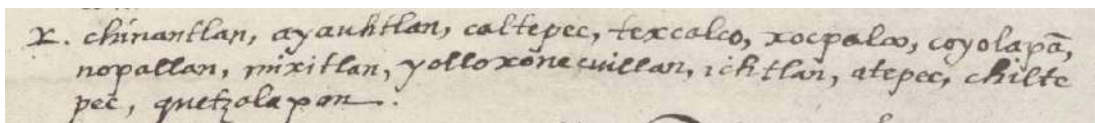 x. chinantlan, ayauhtlan, caltepec, texcalco, xocpalco, coyolapā,
nopallan, mixitlan, yolloxonecuillan, ichtlan, atepec, chilte
pec, quetzalapan.